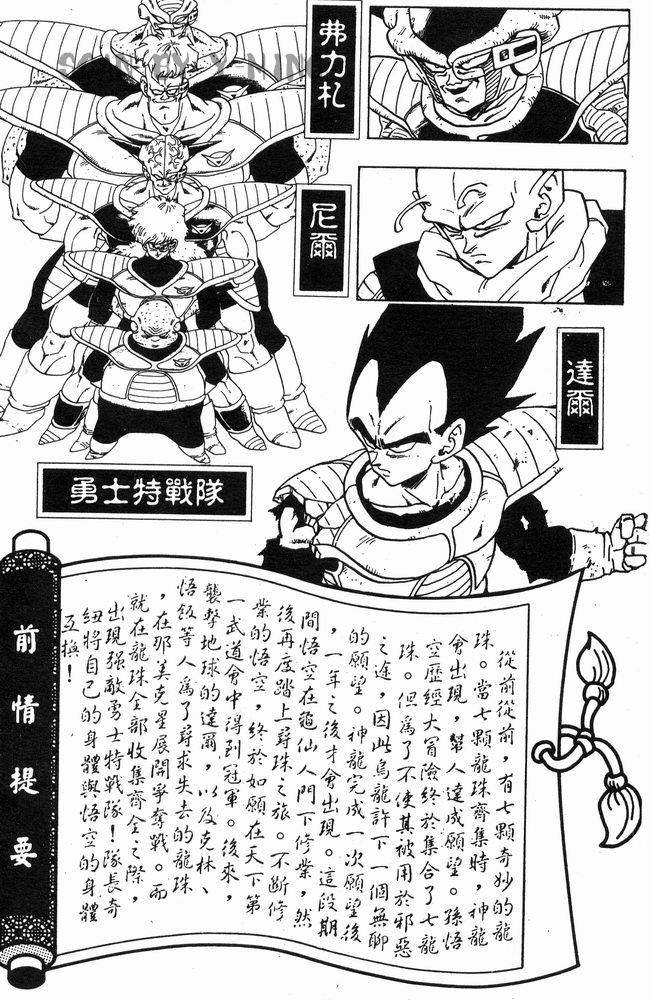 弗力札
尼爾
達爾
勇士特戰隊
前情提要
從前從前,有七顆奇妙的龍
珠。當七顆龍珠齊集時,神龍
會出現,幫人達成願望。孫悟
空歷經大冒險終於集合了七龍
珠。但為了不使其被用於邪惡
之途,因此烏龍許下一個無聊
的願望。神龍完成一次願望後
,一年之後才會出現。這段期
間悟空在龜仙人門下修業,然
後再度踏上尋珠之旅。不斷修
業的悟空,終於如願在天下第
一武道會中得到冠軍。後來,
襲擊地球的達爾,以及克林、
悟飯等人為了尋求失去的龍珠
,在那美克星展開爭奪戰。而
就在龍珠全部收集齊全之際,
出現強敵勇士特戰隊!隊長奇
紐將自己的身體與悟空的身體
互換!